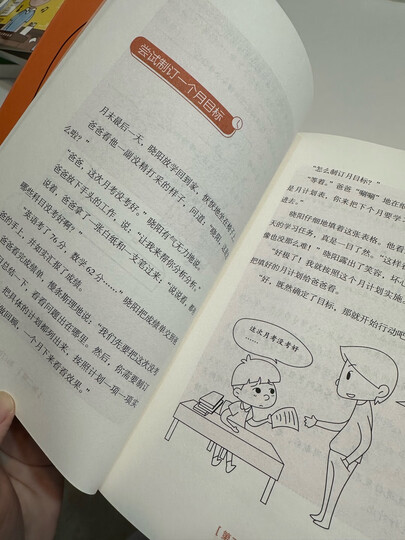 尝试制订一个月目标
月末最后一天，晓阳放学回到家，
爸爸看他一副没精打采的样子，问道：“晓阳，
么啦？”
“爸爸，这次月考没考好。”晓阳有气无力地说。
爸爸放下手头的工作，说：“让我来帮你分析分析。”
说着，爸爸拿了一张白纸和一支笔过来：“说说看，都
哪些科目没考好啊？”
“英语考了76分，数学62分……”晓阳把成绩单交到爸
爸的手上，开始汇报了成绩。
爸看完成绩单，慢条斯理地说：“我们先要把这次考
总结一下，看看问题出在哪里。然后，你需要制订
，把具体的计划都列出来，按照计划一项一项实
做回顾，一个月下来看看效果。”
“怎么制订月目标？”
“等着。”爸爸“唰唰”地在纸
是月计划表，你来把下个月要学
进去。”
晓阳仔细地填着这张表格，他看
天的学习任务，真是一目了然。“这样
像也没那么难！”晓阳露出了笑容，
“好极了！我就按照这个月计划实施
把填好的月计划给爸爸看。
“好，既然确定了目标，那就开始行动吧
这次月考没考好
……
［第